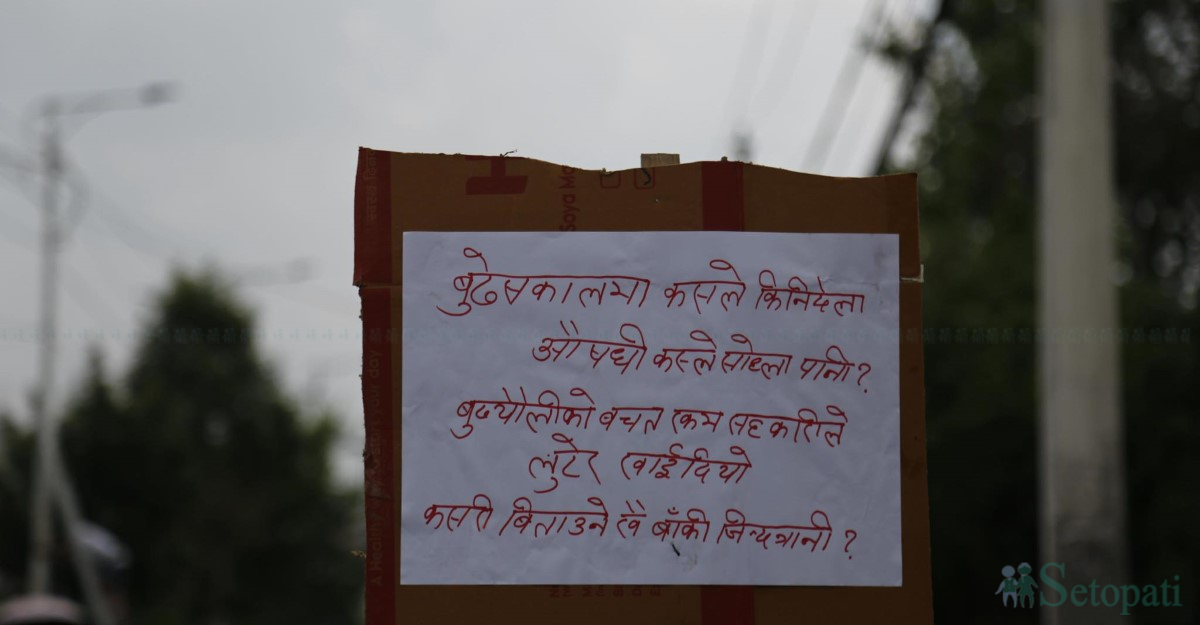 Soya Ma
बुढेसकालमा कसले किनिदेला
औषधी कस्ले सोध्ला पानी?
बुढ्यौलीको बचत रकम सहकारीले
लुटेर खाईदियो
कसरी बिताउने खै बाँकी जिन्दगानी?
Setopati